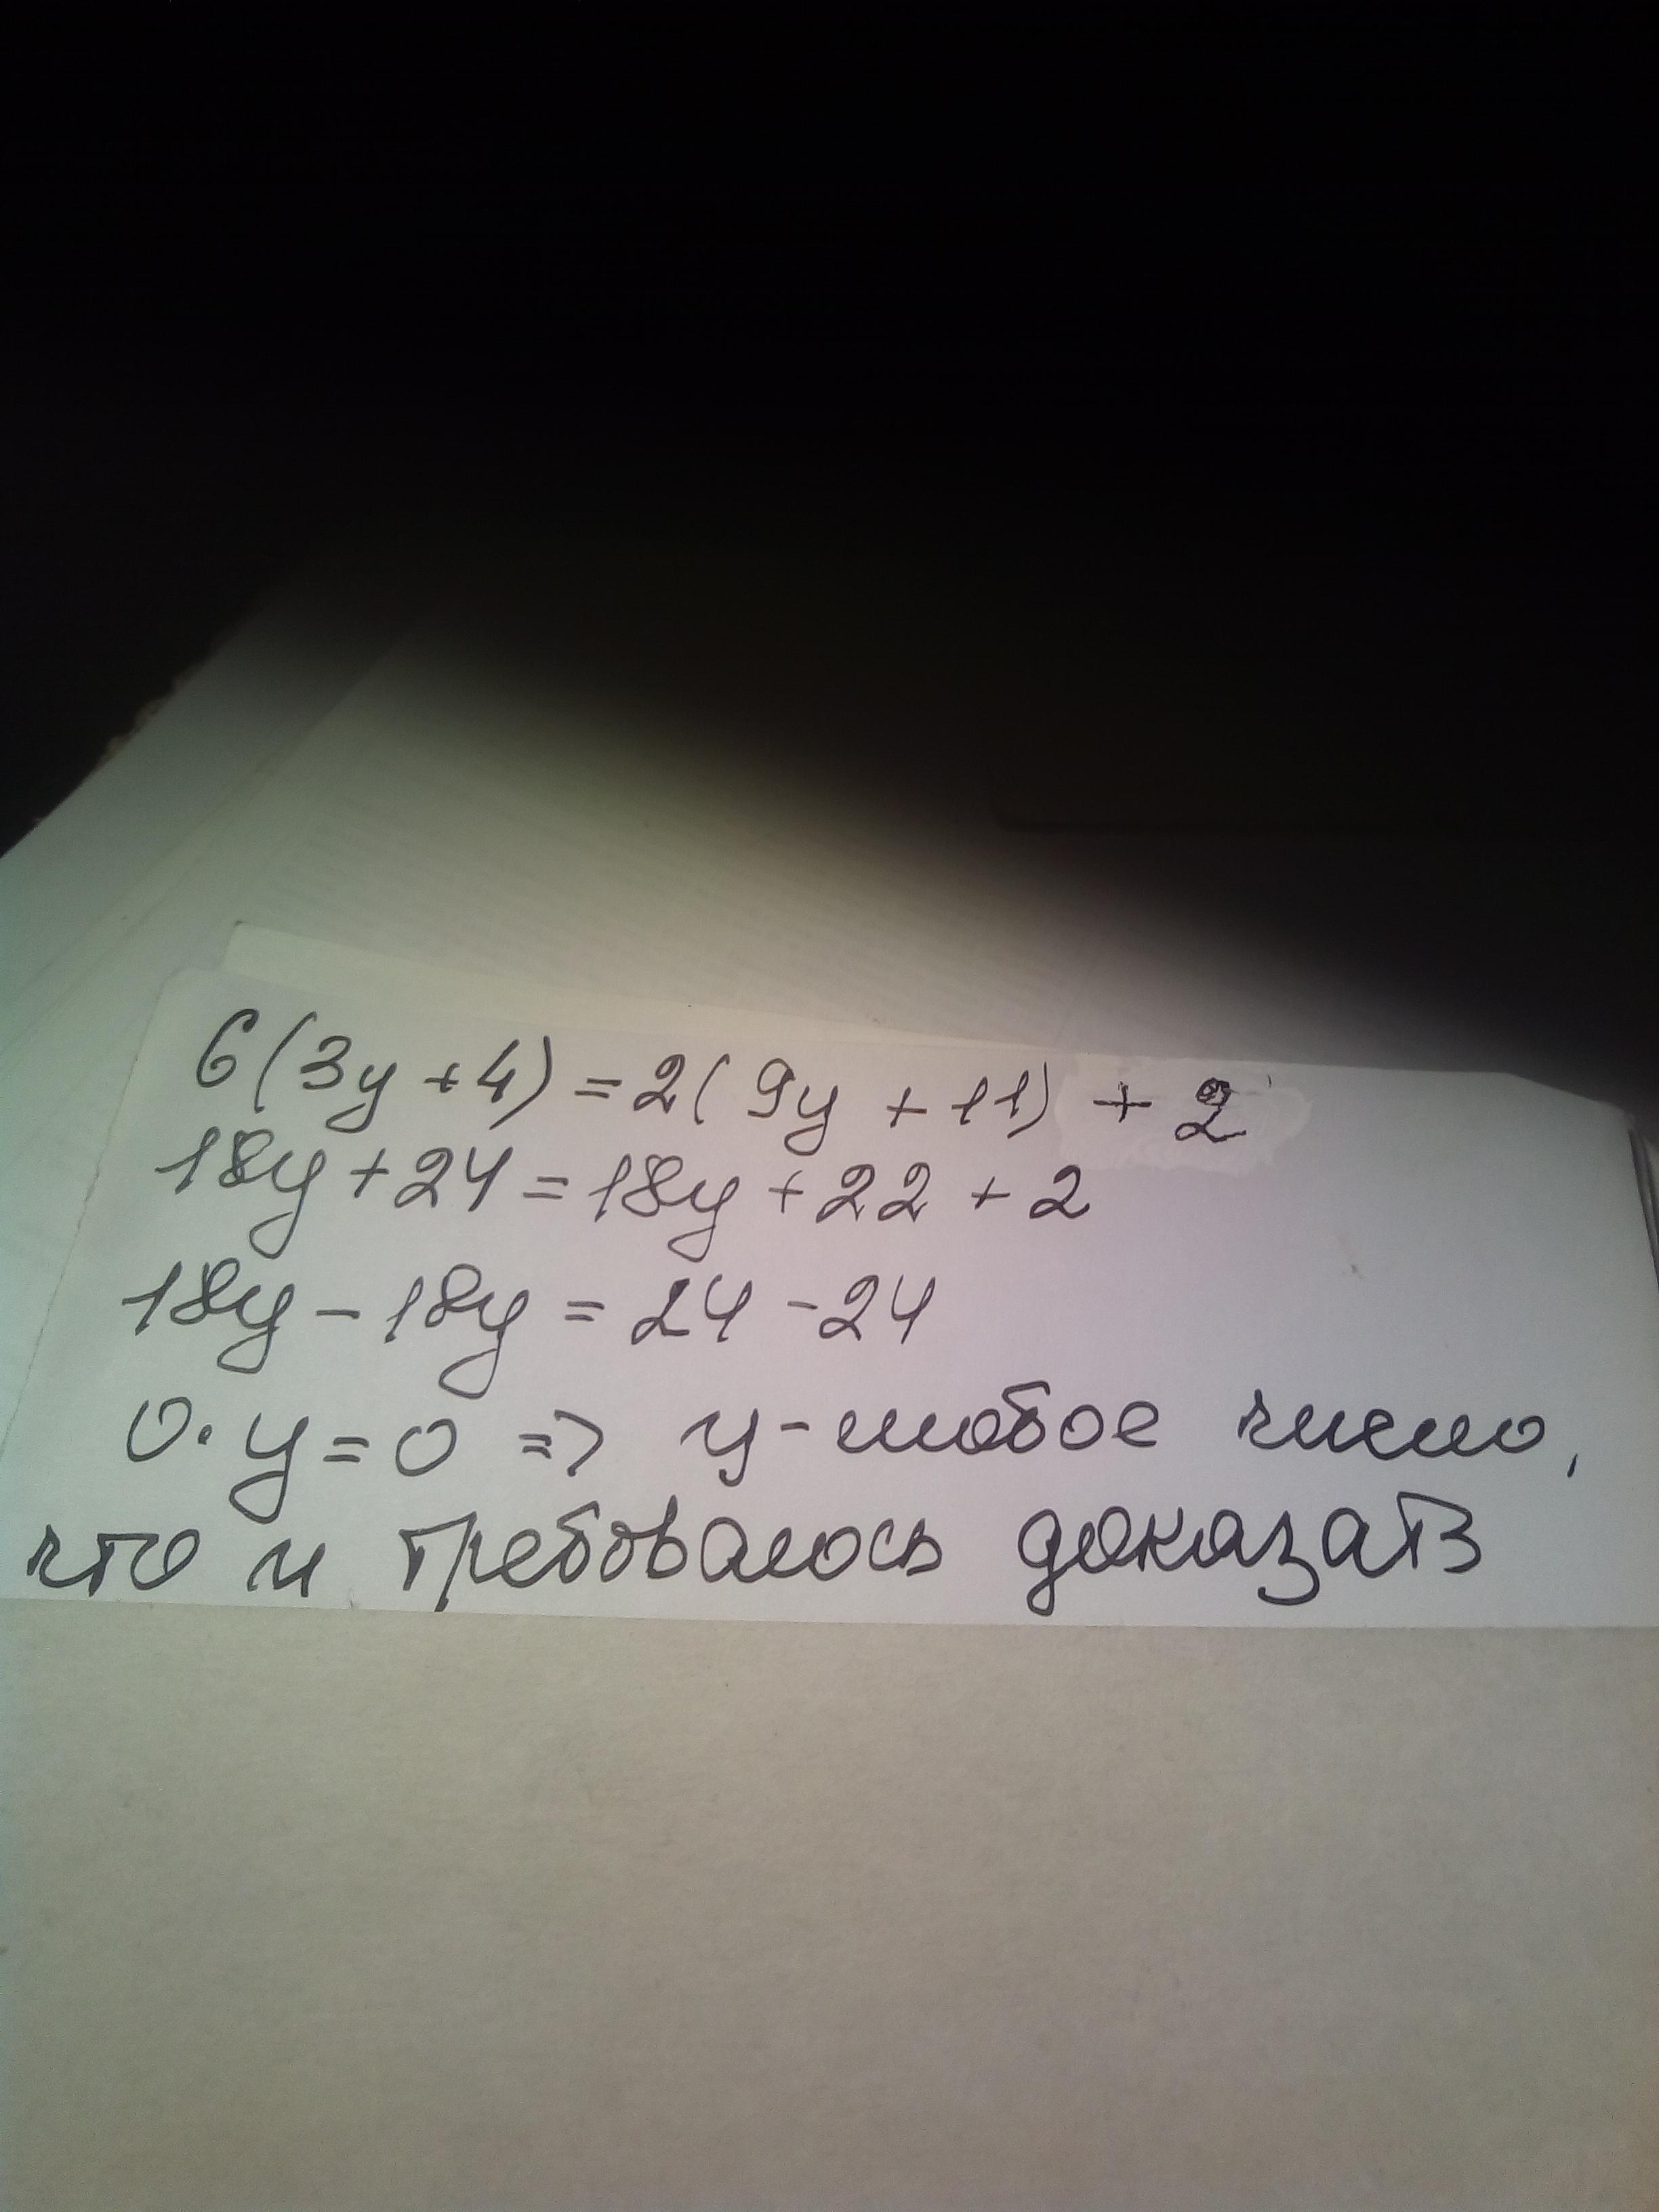 6(3y+4)=2(9y+11)+2
18y+24=18y+22+2
18y-18y=24-24
0·y=0 => y-любое число,
что и требовалось доказать